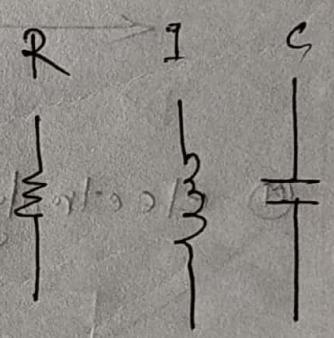 R I C